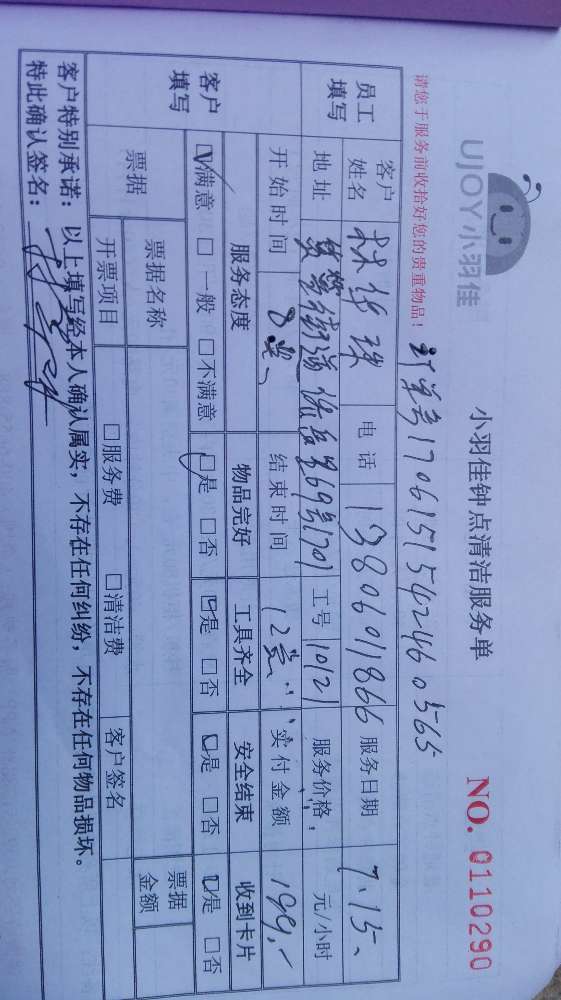 UJOY小羽佳
小羽佳钟点清洁服务单
NO. 0110290
请您于服务前收拾好您的贵重物品！
订单号1706151542460565
员工填写 客户姓名 林 珠 电话 13806011866 服务日期 7.15、
地址 街道 69号1701 工号 10121 服务价格： 元/小时
开始时间 8点、 结束时间 12点 实付金额 199、
客户填写 服务态度 物品完好 工具齐全 安全结束 收到卡片
☑满意 □一般 □不满意 ☑是 □否 ☑是 □否 ☑是 □否 ☑是 □否
票据 票据名称 票据金额
开票项目 □服务费 □清洁费 客户签名
客户特别承诺：以上填写经本人确认属实，不存在任何纠纷，不存在任何物品损坏。
特此确认签名：